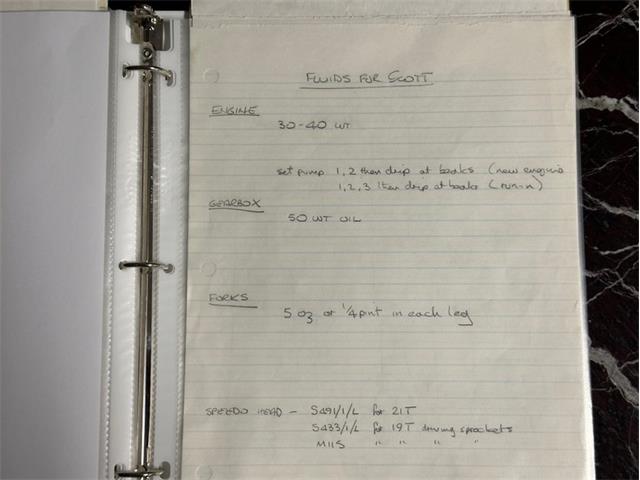 FLUIDS FOR SCOTT
ENGINE
30-40 WT
set pump 1,2 then drip at banks (new engine
1,2,3 then drip at banks (run-in)
GEARBOX
50 WT OIL
FORKS
5 oz or 1/4 pint in each leg
SPEEDO HEAD - S491/1/L for 21T
S433/1/L for 19T driving sprockets
M115 " " " "